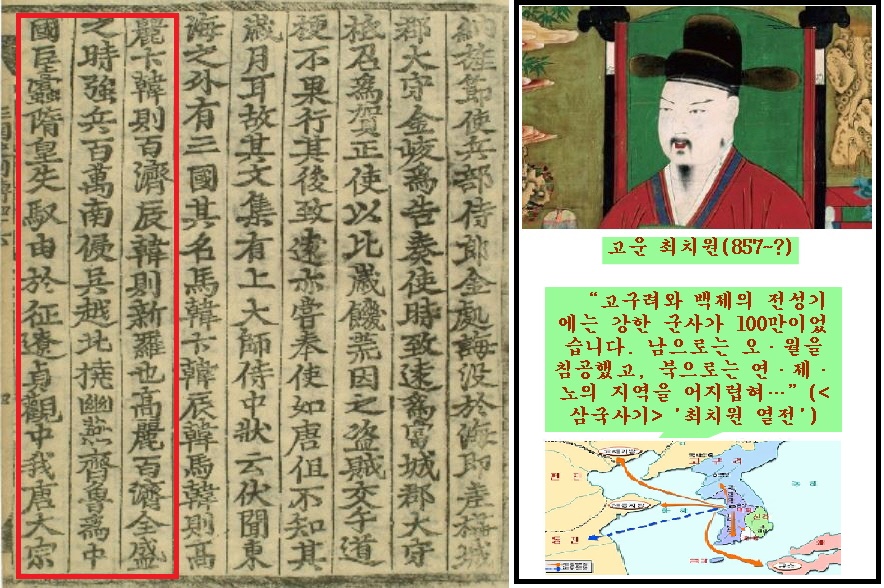 納旌節使兵部侍郎金處誨没於海即差橻城
郡大守金峻爲告奏使時致遠爲富城郡大守
祗召爲賀正使以比歲饑荒因之盜賊交午道
梗不果行其後致遠亦嘗奉使如唐但不知其
歲月耳故其文集有上大師侍中狀云伏聞東
海之外有三國其名馬韓卞韓辰韓馬韓則高
麗卞韓則百濟辰韓則新羅也高麗百濟全盛
之時強兵百萬南侵吳越北撓幽燕齊魯爲中
國巨蠹隋皇失馭由於征遼貞觀中我唐大宗
고운 최치원(857~?)
“고구려와 백제의 전성기
에는 강한 군사가 100만이었
습니다. 남으로는 오·월을
침공했고, 북으로는 연·제·
노의 지역을 어지럽혀…” (<
삼국사기> '최치원 열전')
고구려
동진